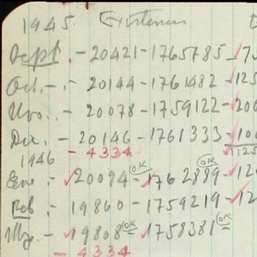 1945 Existencia
Sept. - 20421 - 1765785
Oct. - 20144 - 1761482 - 125
Nov. - 20078 - 1759122 - 200
Dic. - 20146 - 1761333 - 100
1946 - 4334 125
Ene - 20094 OK - 1762889 OK - 12
Feb - 19860 - 1759219 - 12
Mzo. - 19808 OK - 1758381 OK
- 4334